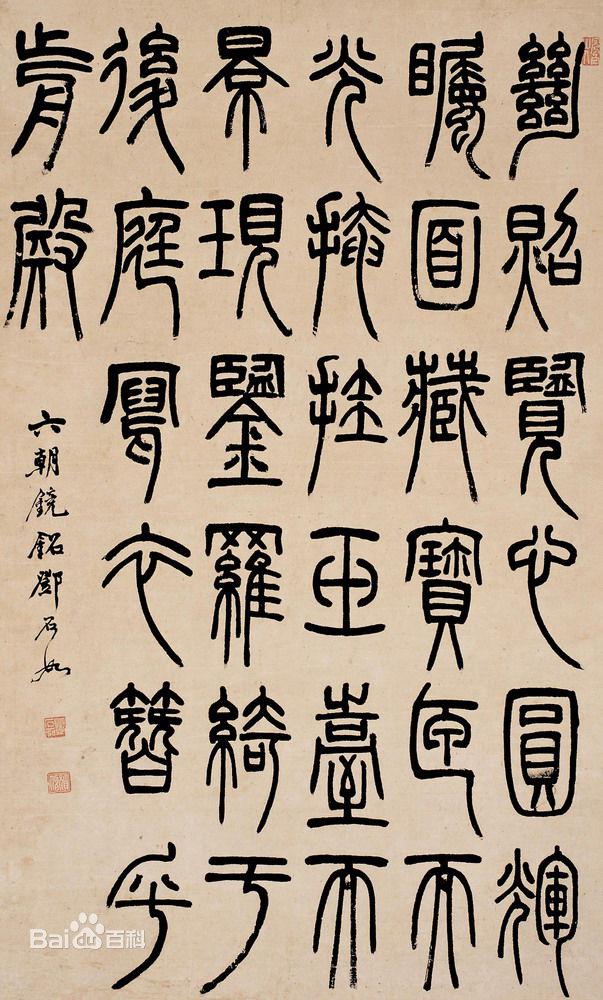 絕照覽心圓輝
矚面藏寶匣而
光掩挂玉臺而
景現鑒羅綺于
後庭寫衣簪乎
前殿
六朝鏡銘鄧石如
Bai百科